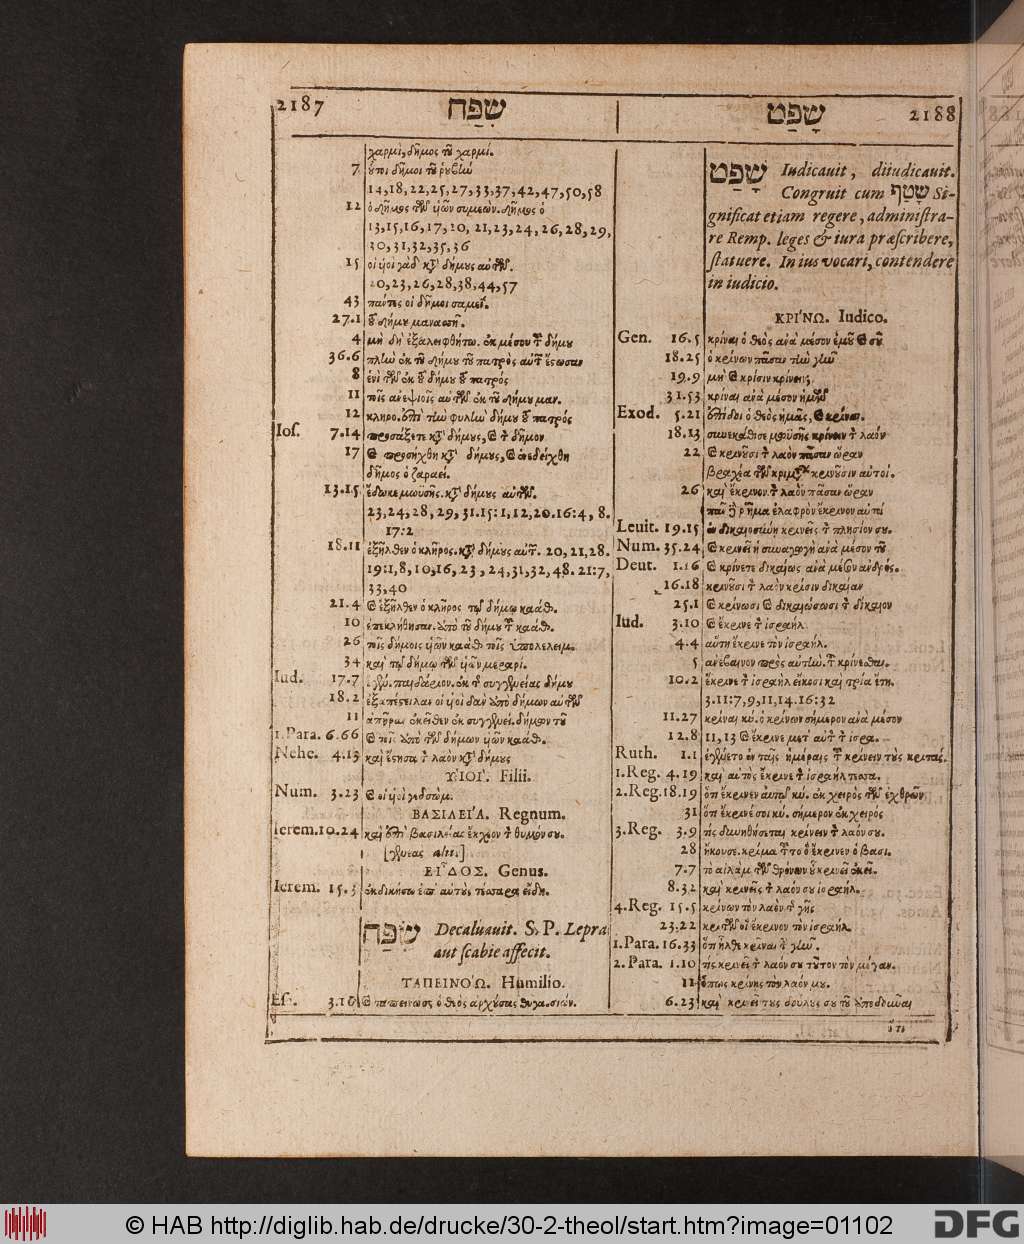 2187 שִׂפַּח
שָׁפַט 2188
χαρμὶ, δῆμος τοῦ χαρμί.
7 οὗτοι δῆμοι τοῦ ῥουβὶν
14,18,22,25,27,33,37,42,47,50,58
12 ὁ δῆμος τῶν υἱῶν συμεὼν. δῆμος ὁ
13,15,16,17,20, 21,23,24,26,28,29,
30,31,32,35,36
15 οἱ υἱοὶ γὰδ κατὰ δήμους αὐτῶν.
20,23,26,28,38,44,57
43 πάντες οἱ δῆμοι σαμεΐ.
27.1 τοῦ δήμου μανασσῆ.
4 μὴ δὴ ἐξαλειφθήτω. ἐκ μέσου τοῦ δήμου
36.6 πλὴν ἐκ τοῦ δήμου τοῦ πατρὸς αὐτῶν ἔσωσαν
8 ἑνὶ τῶν ἐκ τοῦ δήμου τοῦ πατρὸς
11 τοῖς ἀνεψιοῖς αὐτῶν ἐκ τοῦ δήμου μαν.
12 κληρο. ἐπὶ τὴν φυλὴν δήμου τοῦ πατρός
Ios. 7.14 προσάξετε κατὰ δήμους, καὶ τὸν δῆμον
17 καὶ προσήχθη κατὰ δήμους, καὶ ἀνεδείχθη
δῆμος ὁ ζαραεί.
13.15 ἔδωκε μωυσῆς. κατὰ δήμους αὐτῶν.
23,24,28,29,31.15:1,12,20.16:4, 8.
17:2
18.11 ἐξῆλθεν ὁ κλῆρος. κατὰ δήμους αὐτῶν. 20,21,28.
19:1,8,10,16,23,24,31,32,48.21:7,
33,40
21.4 καὶ ἐξῆλθεν ὁ κλῆρος τῷ δήμῳ καάθ.
10 ἐπεκλήθησαν. ἀπὸ τοῦ δήμου τοῦ καάθ.
26 τοῖς δήμοις υἱῶν καὰθ τοῖς ὑπολελειμ.
34 καὶ τῷ δήμῳ τῶν υἱῶν μεραρί.
Iud. 17.7 ἐγέν. παιδάριον. ἐκ τῆς συγγενείας δήμου
18.2 ἐξαπέστειλαν οἱ υἱοὶ δὰν ἀπὸ δήμων αὐτῶν
11 ἀπῆραν ἐκεῖθεν ἐκ συγγενεί. δήμου τοῦ
1.Para. 6.66 καὶ τοῖς ἀπὸ τῶν δήμων υἱῶν καάθ.
Nehe. 4.13 καὶ ἔστησα τὸν λαὸν κατὰ δήμους
ΥΙΟΊ. Filii.
Num. 3.23 καὶ οἱ υἱοὶ γεδσὼμ.
ΒΑΣΙΛΕΊΑ. Regnum.
Ierem. 10.24 καὶ ἐπὶ βασιλείας ἔκχεον τὸν θυμόν σου.
[γενεας alii.]
ΕΊΔΟΣ. Genus.
Ierem. 15.3 ἐκδικήσω ἐπ' αὐτοὺς τέσσαρα εἴδη.
שִׂפַּח Decaluauit. S.P. Lepra
aut scabie affecit.
ΤΑΠΕΙΝΌΩ. Humilio.
Es. 3.16 καὶ ταπεινώσει ὁ θεὸς ἀρχούσας θυγα. σιών.
שָׁפַט Iudicavit, diiudicavit.
Congruit cum שָׁטַף Si-
gnificat etiam regere, administra-
re Remp. leges & iura præscribere,
statuere. In ius vocari, contendere
in iudicio.
ΚΡΙΝΩ. Iudico.
Gen. 16.5 κρίναι ὁ θεὸς ἀνὰ μέσον ἐμοῦ καὶ σοῦ
18.25 ὁ κρίνων πᾶσαν τὴν γῆν
19.9 μὴ καὶ κρίσιν κρίνειν;
31.53 κρίναι ἀνὰ μέσον ἡμῶν
Exod. 5.21 ἐπίδοι ὁ θεὸς ἡμᾶς, καὶ κρίναι.
18.13 συνεκάθισε μωυσῆς κρίνειν τὸν λαόν
22 καὶ κρινοῦσι τὸν λαὸν πᾶσαν ὥραν
βραχέα τῶν κριμάτων κρινοῦσιν αὐτοί.
26 καὶ ἔκρινον τὸν λαὸν πᾶσαν ὥραν
πᾶν δὲ ῥῆμα ἐλαφρὸν ἔκρινον αὐτοί
Leuit. 19.15 ἐν δικαιοσύνῃ κρινεῖς τὸν πλησίον σου.
Num. 35.24 καὶ κρινεῖ ἡ συναγωγὴ ἀνὰ μέσον τοῦ
Deut. 1.16 καὶ κρίνετε δικαίως ἀνὰ μέσον ἀνδρός.
16.18 κρινοῦσι τὸν λαὸν κρίσιν δικαίαν
25.1 καὶ κρίνωσι καὶ δικαιώσωσι τὸν δίκαιον
Iud. 3.10 καὶ ἔκρινε τὸν ἰσραήλ.
4.4 αὕτη ἔκρινε τὸν ἰσραήλ.
5 ἀνέβαινον πρὸς αὐτὴν. τοῦ κρίνεσθαι.
10.2 ἔκρινε τὸν ἰσραὴλ εἴκοσι καὶ τρία ἔτη.
3.11:7,9,11,14.16:32
11.27 κρίναι κύ. ὁ κρίνων σήμερον ἀνὰ μέσον
12.8 11,13 καὶ ἔκρινε μετ' αὐτὸν τὸν ἰσρα.
Ruth. 1.1 ἐγένετο ἐν ταῖς ἡμέραις τοῦ κρίνειν τοὺς κριτάς.
1.Reg. 4.19 καὶ αὐτὸς ἔκρινε τὸν ἰσραὴλ τεσσα.
2.Reg. 18.19 ὅτι ἔκρινεν αὐτῷ κύ. ἐκ χειρὸς τῶν ἐχθρῶν
31 ὅτι ἔκρινέ σοι κύ. σήμερον ἐκ χειρός
3.Reg. 3.9 τίς δυνήσεται κρίνειν τὸν λαόν σου.
28 ἤκουσε. κρίμα τοῦτο ὃ ἔκρινεν ὁ βασι.
7.7 τὸ αἰλὰμ τῶν θρόνων οὗ κρινεῖ ἐκεῖ.
8.32 καὶ κρινεῖς τὸν λαόν σου ἰσραήλ.
4.Reg. 15.5 κρίνων τὸν λαὸν τῆς γῆς
23.22 κριτῶν οἳ ἔκρινον τὸν ἰσραήλ.
1.Para. 16.33 ὅτι ἦλθε κρῖναι τὴν γῆν.
2.Para. 1.10 τίς κρινεῖ τὸν λαόν σου τοῦτον τὸν μέγαν.
11 ὅπως κρίνῃς τὸν λαόν μου.
6.23 καὶ κρινεῖ τοὺς δούλους σου τοῦ ἀποδοῦναι
© HAB http://diglib.hab.de/drucke/30-2-theol/start.htm?image=01102
DFG